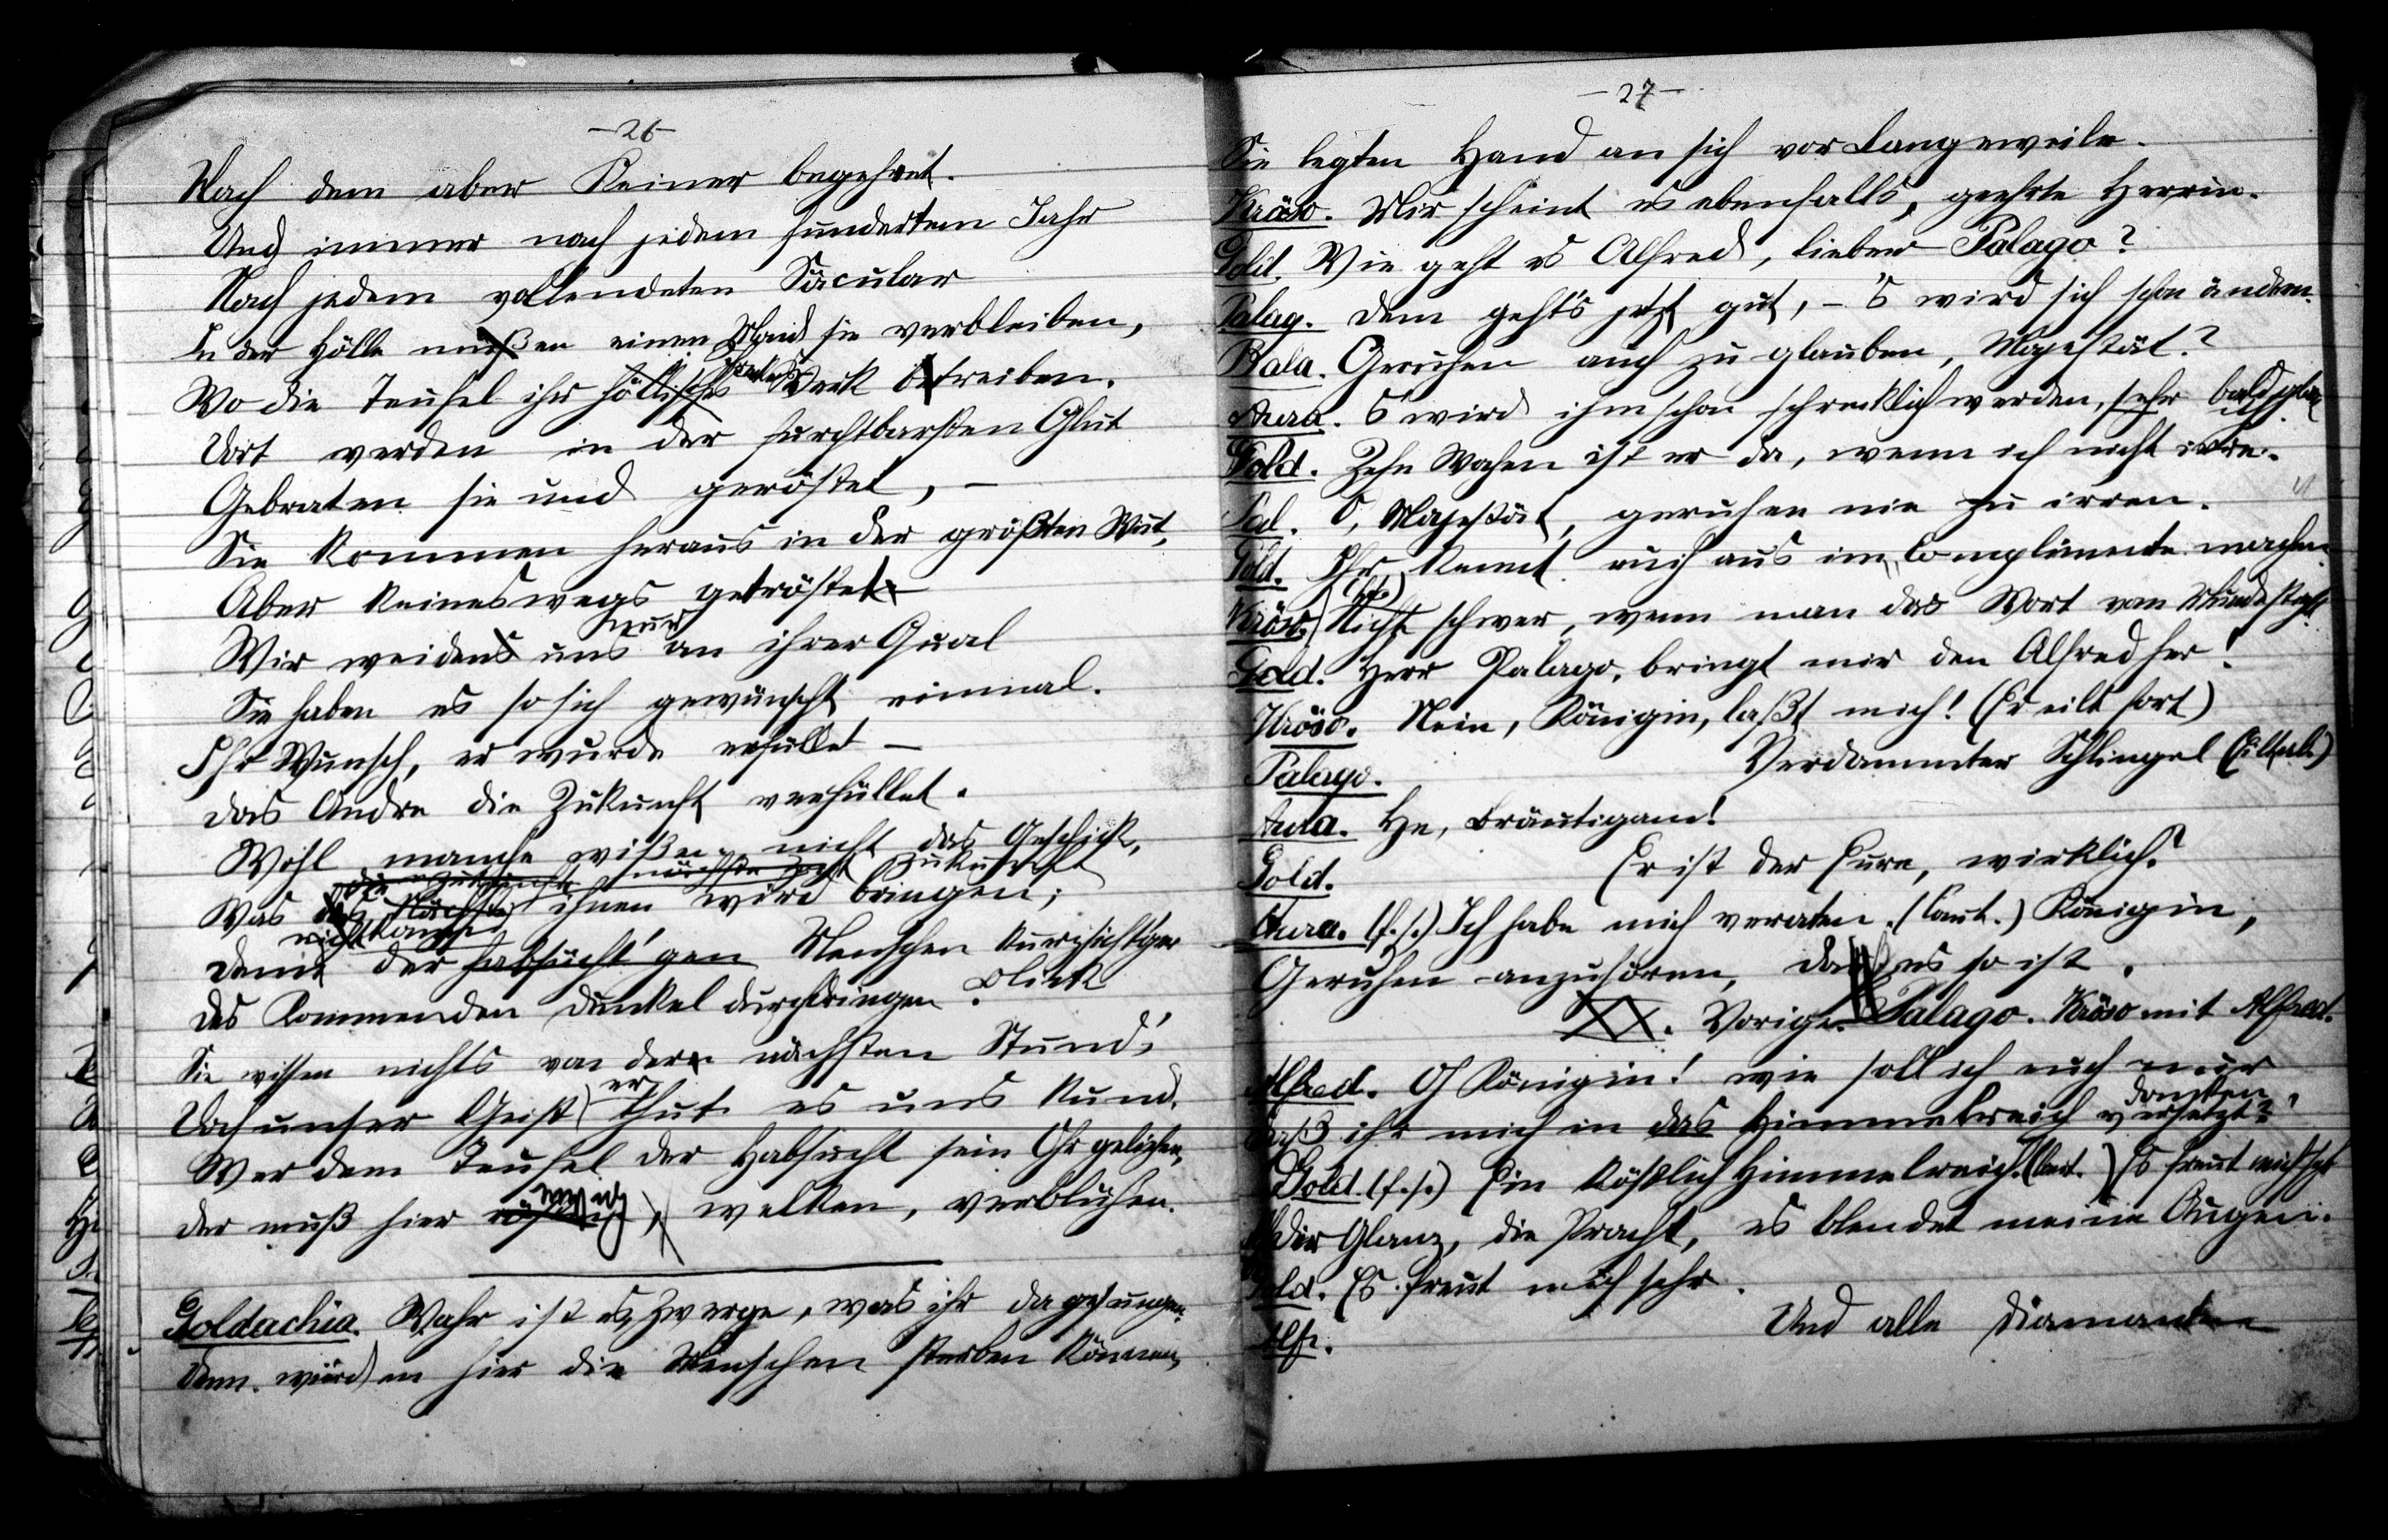 -26-
Nach dem aber Keiner begehret.
Und immer nach jedem hundertem Jahr
Nach jedem vollendeten Säcular
In der Hölle müßen einen Mond sie verbleiben,
Wo die Teufel ihr höllisches Werk betreiben.
Dort werden in der furchtbarsten Glut
Gebraten sie und geröstet, –
Sie kommen heraus in der größten Wut,
Aber keineswegs getröstet
Wir weiden uns nur an ihrer Qual
Sie haben es so sich gewünscht einmal.
Ihr Wunsch, er wurde erfüllet –
Das Andre die Zukunft verhüllet.
Wohl manche wißen nicht das Geschick,
die Zukunft nächste Zukunft
Was das Nächste ihnen wird bringen;
nicht kann
Denn der habsücht'gen Menschen kurzsichtiger Blick
Des Kommenden Dunkel durchdringen.
Sie wissen nichts von der nächsten Stund'
Doch unser Geist er thut es uns kund.
Wer dem Teufel der Habsucht sein Ohr geliehen,
Der muß hier welken, verblühen.
Goldachia. Wahr ist es, Zwerge, was ihr da gesungen.
Denn würden hier die Menschen sterben können,
-27-
Sie legten Hand an sich vor Langeweile.
Kröso. Mir scheint es ebenfalls, geehrte Herrin.
Gold. Wie geht es Alfred, lieber Palago?
Palag. Dem geht's jetzt gut, – 's wird sich schon ändern.
Bala. Geruhen auch zu glauben, Majestät?
Aura. 's wird ihm schon schrecklich werden, sehr bald
Gold. Zehn Wochen ist er da, wenn ich nicht irre.
Pal. O, Majestät, geruhen nie zu irren.
Gold. Ihr kennt euch aus im Complimente machen.
Kröso. (lft.) Nicht schwer, wenn man das Wort vom Munde stiehlt
Gold. Herr Palago, bringt mir den Alfred her!
Kröso. Nein, Königin, laßt mich! (Er eilt fort)
Palago. Verdammter Schlingel (eilt ab)
Aura. He, Bräutigam!
Gold. Er ist der Eure, wirklich?
Aura. (f. s.) Ich habe mich verraten. (laut.) Königin,
Geruhen anzuhören, daß es so ist.
XX. Vorige. Palago. Kröso mit Alfred.
Alfred. O Königin! wie soll ich euch nur danken
Daß ihr mich in das Himmelreich versetzt?
Gold. (f. s.) Ein köstlich Himmelreich. (laut.) Es freut mich sehr
Der Glanz, die Pracht, es blendet meine Augen.
Gold. Es freut mich sehr.
Alfr. Und alle Diamanten